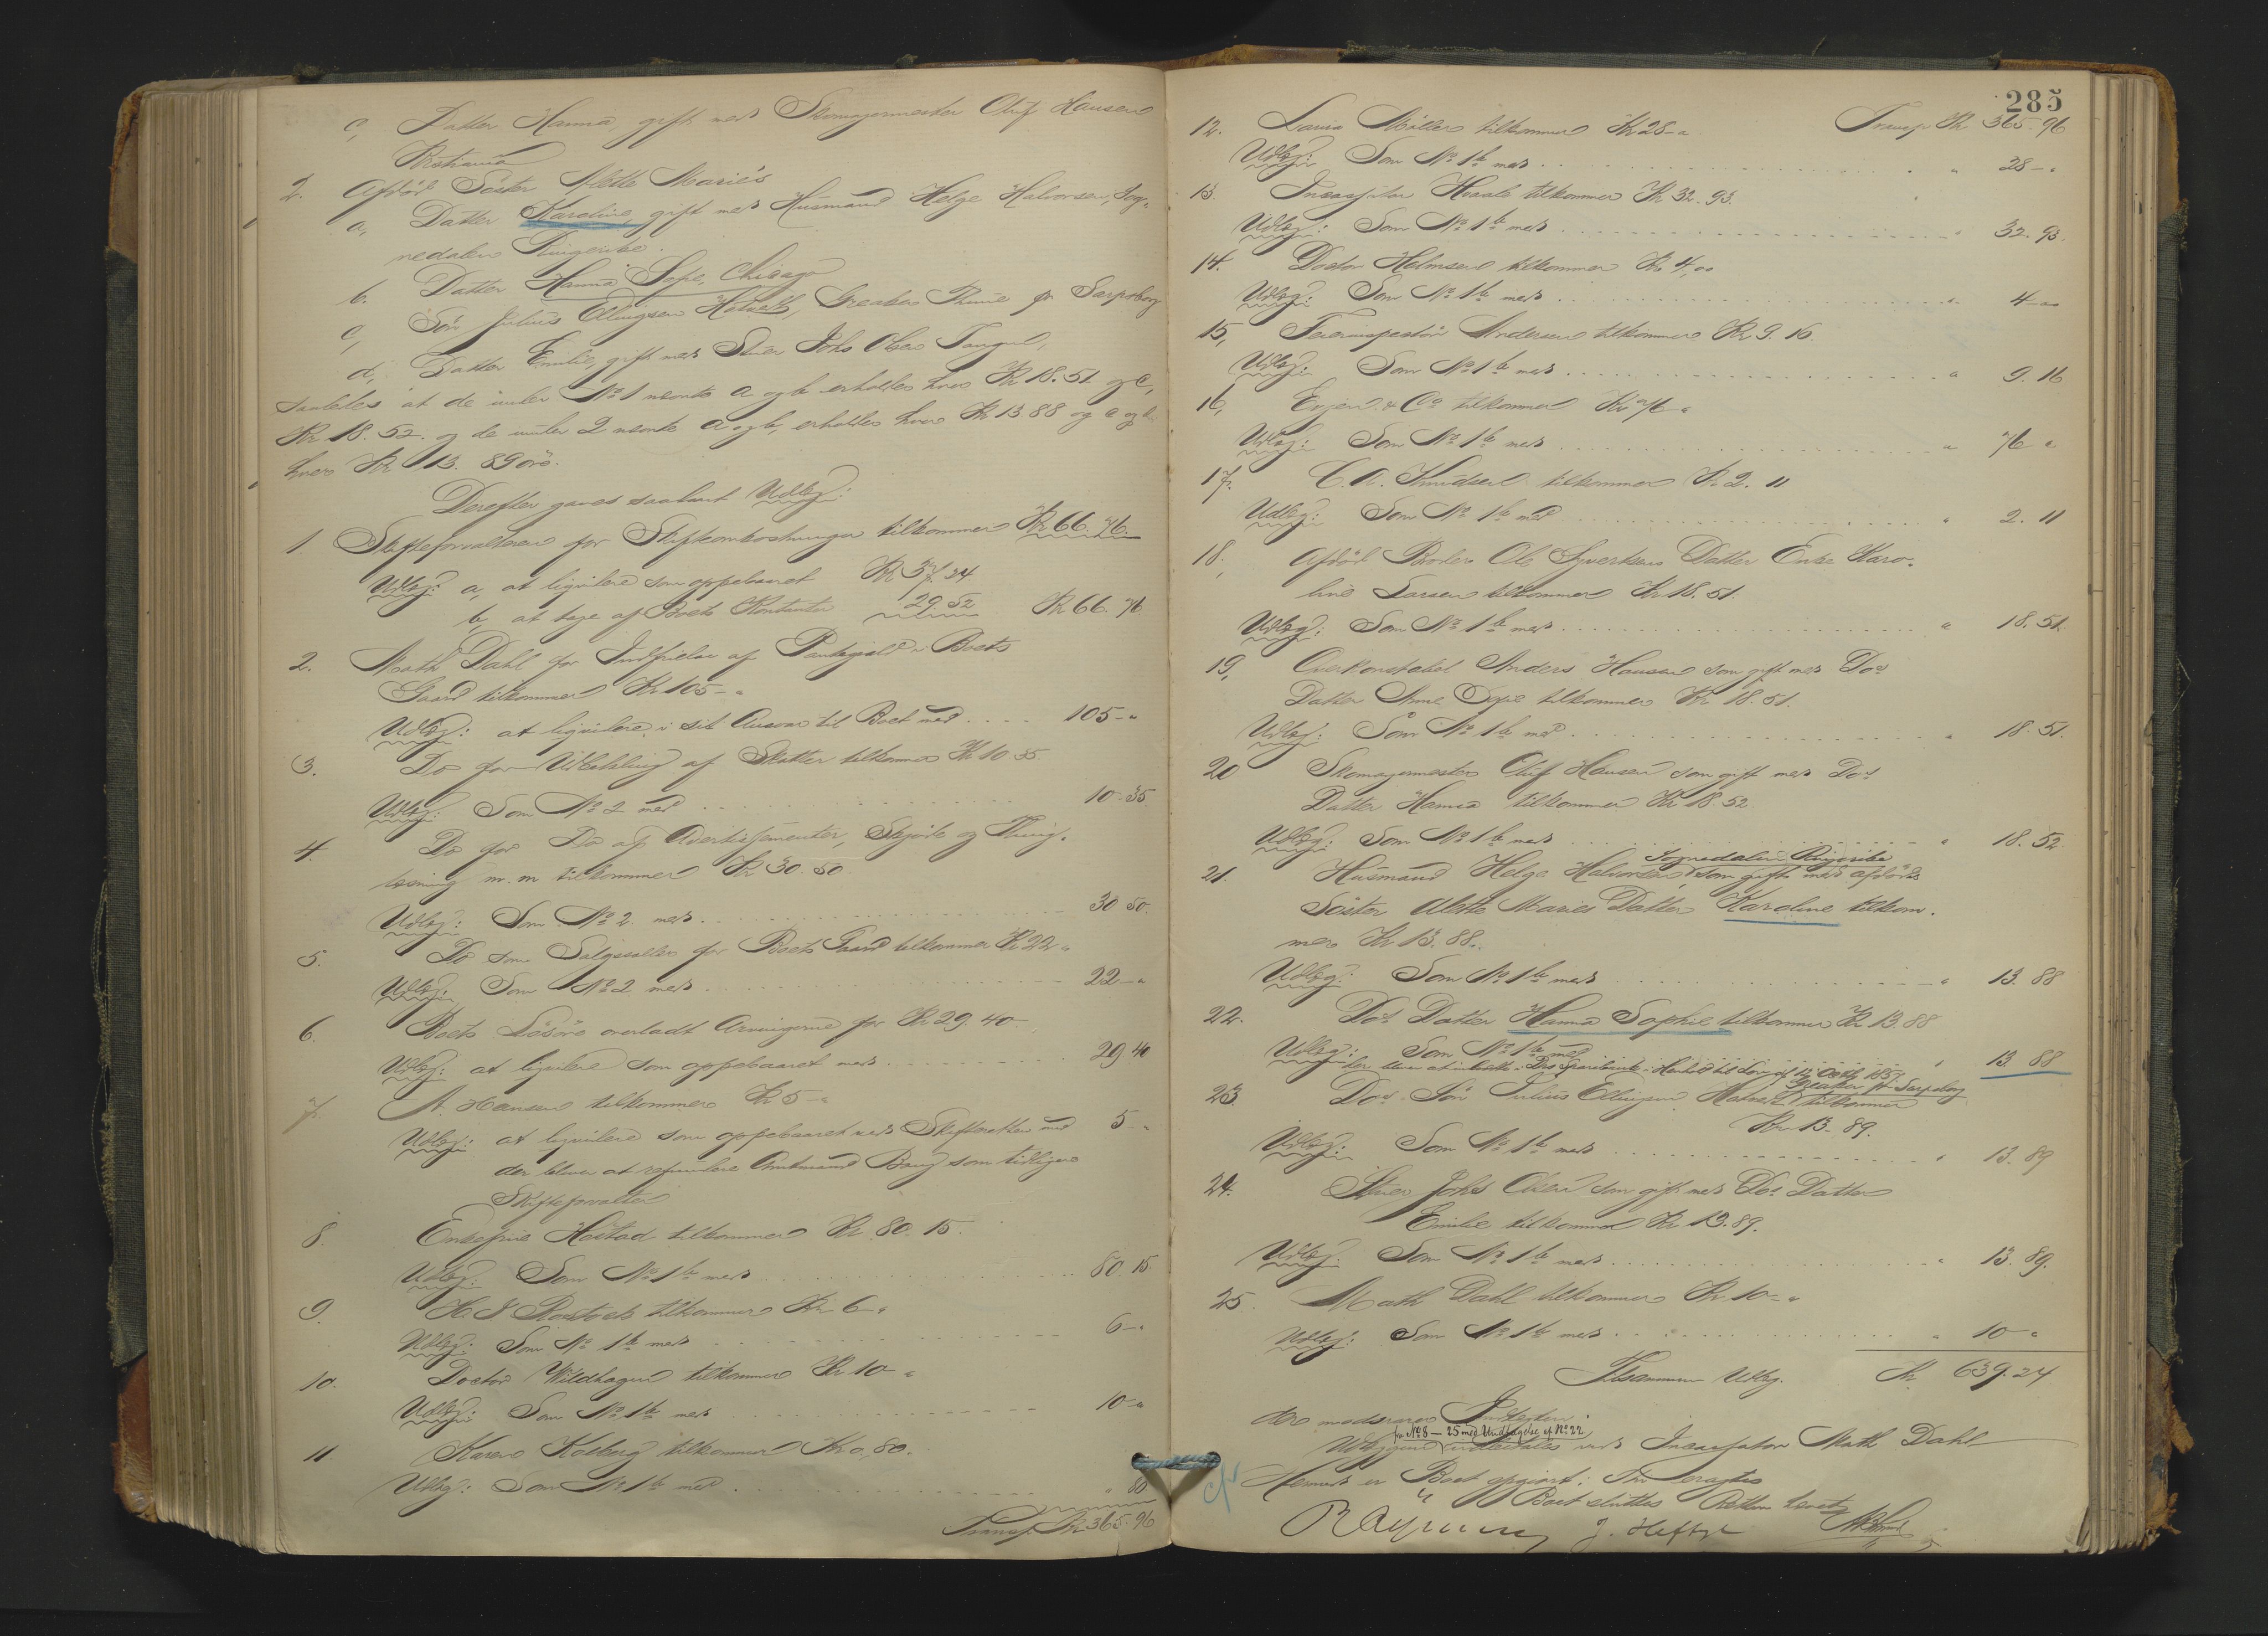 c, Datter Hanna, gift med Skomagermester Oluf Hansen
Kristiania
2. Afdød Søster Alette Marie's
a, Datter Karoline, gift med Husmand Helge Halvorsen, Sog-
nedalen Ringerike.
b. Datter Hanna Sofie, Chicago
c, Søn Julius Ellingsen Hotvedt, Greaker Thune pr Sarpsborg
d, Datter Emilie, gift med Stuer Johs Olsen Tangen,
saaledes at de under No 1 nævnte a og b erholder hver Kr 18.51 og c,
Kr 18.52. og de under 2 nævnte a og b, erholder hver Kr 13 88 og c og d
hver Kr 13. 89 øre.
Derefter gaves saadant Udlæg:
1 Skifteforvalteren for Skifteomkostninger tilkommer Kr 66. 76.
Udlæg: a, at liqvidere som oppebaaret Kr 37 24
b, at tage af Boets Kontanter 29. 52 Kr 66. 76
2. Math Dahl for Indfrielse af Pantegjeld i Boets
Gaard tilkommer Kr 105-"
Udlæg: at liqvidere i sit Ansvar til Boet med .... 105-"
3. Do for Udbetaling af Skatter tilkommer Kr 10 35
Udlæg: Som No 2 med 10-35.
4. Do for Do af Avertissementer, Skjøde og Thing-
læsning m.m tilkommer Kr 30. 50
Udlæg: Som No 2. med 30 50.
5. Do som Salgssallær for Boets Gaard tilkommer Kr 22 "
Udlæg: Som No 2 med 22-"
6. Boets Løsøre overladt Arvingerne for Kr 29. 40
Udlæg: at liqvidere som oppebaaret med 29 40
7. A. Hansen tilkommer Kr 5-"
Udlæg: at liqvidere som oppebaaret ved Skifteretten med 5-"
der bliver at refundere Amtmand Bang som tidligere
Skifteforvalter
8. Enkefrue Høstad tilkommer Kr 80. 15.
Udlæg: Som No 1 b med 80. 15
9. H. J Rostock tilkommer Kr 6-"
Udlæg: Som No 1 b med 6-"
10. Doctor Wildhagen tilkommer Kr 10-"
Udlæg: Som No 1 b med 10-"
11 Karen Kolberg tilkommer Kr 0,80.
Udlæg: Som No 1 b med " 80
Transp. Kr 365. 96
285
12. Lovise Møller tilkommer Kr 28-" Transp Kr 365. 96
Udlæg: Som No 1 b med " 28-"
13. Incassator Hvaale tilkommer Kr 32. 93.
Udlæg: Som No 1 b med " 32. 93.
14. Doctor Helmsen tilkommer Kr 4,00
Udlæg: Som No 1 b med " 4-"
15, Feierinspectør Andersen tilkommer Kr 9. 16.
Udlæg: Som No 1 b med " 9. 16
16, Evjen & Co tilkommer Kr 76 "
Udlæg: Som No 1 b med " 76 "
17. C. A. Knudsen tilkommer Kr 2. 11
Udlæg: Som No 1 b med " 2. 11
18, Afdød Broder Ole Syvertsens Datter Enke Karo-
line Larsen tilkommer Kr 18. 51.
Udlæg: Som No 1 b med " 18. 51.
19, Overkonstabel Anders Hansen som gift med Dos
Datter Anne Sofie tilkommer Kr 18. 51.
Udlæg: Som No 1 b med " 18. 51.
20 Skomagermester Oluf Hansen som gift med Dos
Datter Hanna tilkommer Kr 18. 52
Udlæg: Som No 1 b med " 18. 52
Sognedalen Ringerike
21. Husmand Helge Halvorsen, som gift med afdøde
Søster Alette Maries Datter Karoline tilkom-
mer Kr 13. 88.
Udlæg: Som No 1 b med " 13. 88
22. Dos Datter Hanna Sophie tilkommer Kr 13.88
Udlæg: Som No 1 b med " 13. 88
der bliver at indsætte i Dms Sparebank i Henhold til Lov af 12 Octbr 1857
Greaker pr Sarpsborg
23. Dos Søn Julius Ellingsen Hotvedt tilkommer
Kr 13. 89.
Udlæg: Som No 1 b med " 13. 89
24. Stuer Johs Olsen som gift med Dos Datter
Emilie tilkommer Kr 13.89.
Udlæg: Som No 1 b med " 13. 89.
25. Math Dahl tilkommer Kr 10-"
Udlæg: Som No 1 b med " 10-"
Tilsammen Udlæg. Kr 639. 24
der modsvarer Indtægten.
fra No 8 - 25 med Undtagelse af No 22
Udlæggene udbetales ved Incassator Math Dahl
Hermed er Boet opgjort.
Boet sluttes Retten hævet
J. Heftye